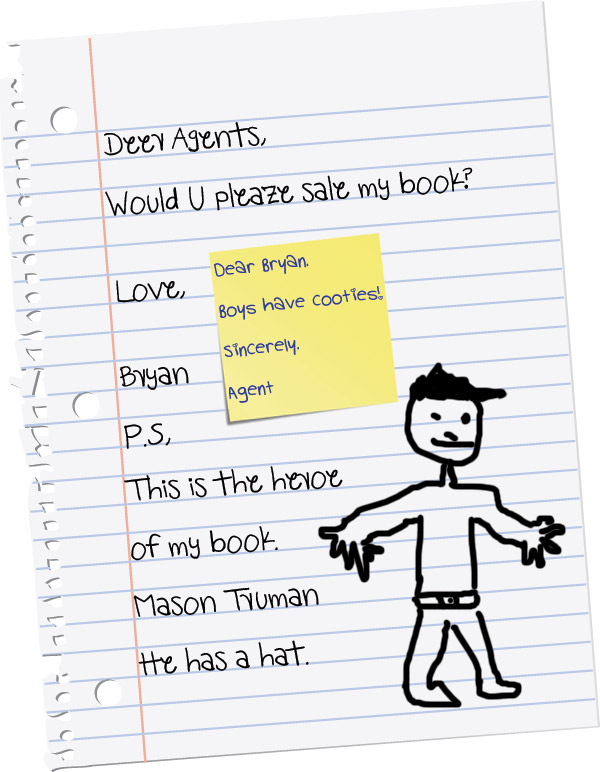 Deer Agents,
Would U pleaze sale my book?
Love,
Bryan
P.S,
This is the heroe
of my book.
Mason Truman
He has a hat.
Dear Bryan.
Boys have cooties!
Sincerely.
Agent